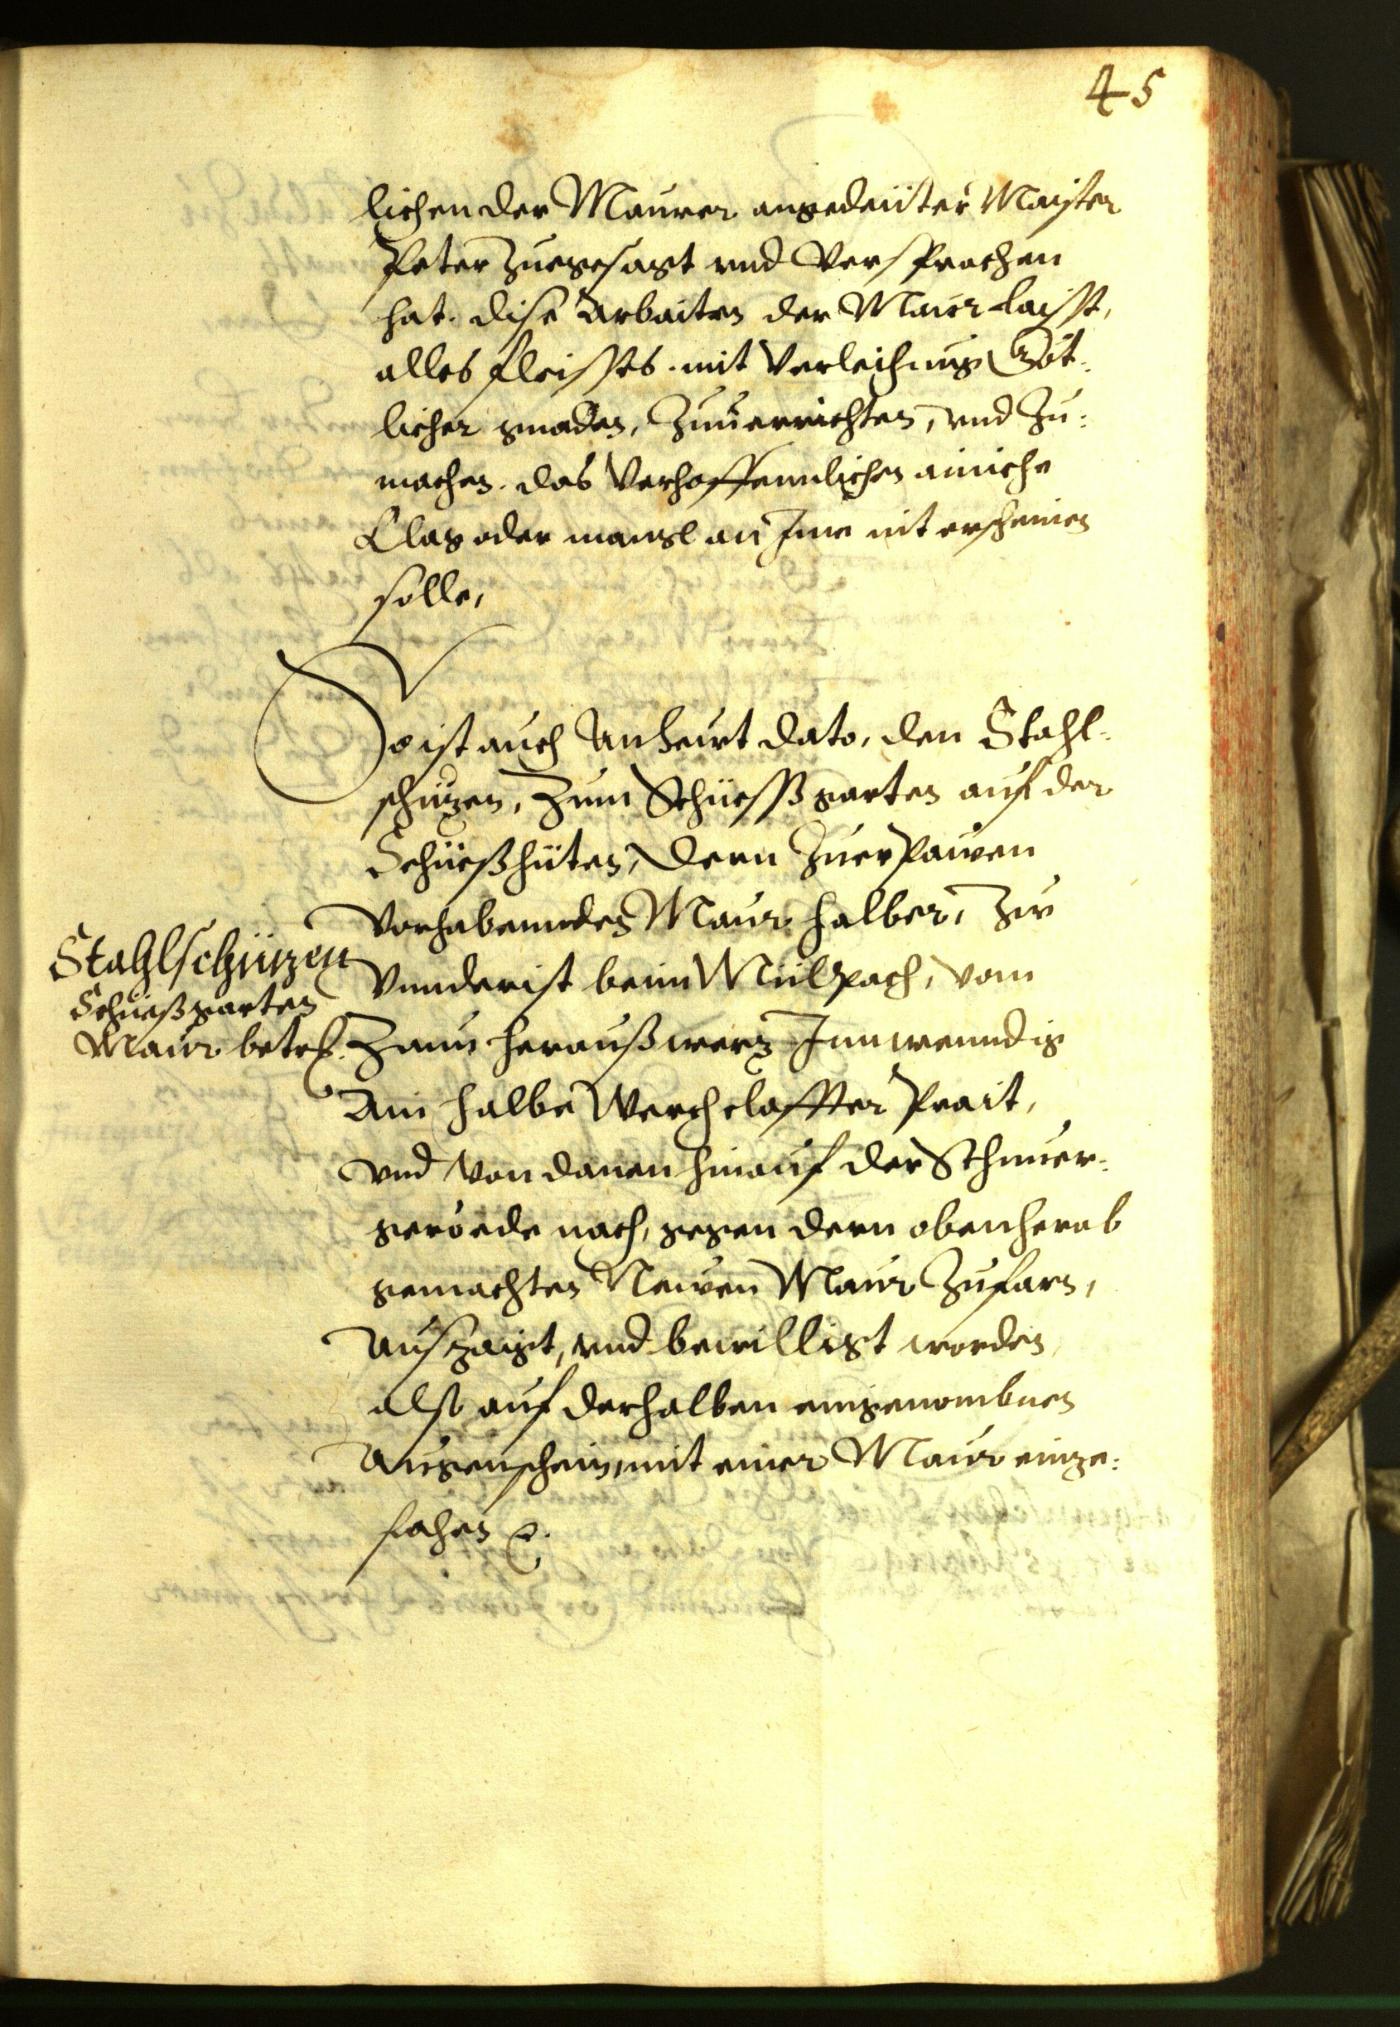 45
lichen der Maurer angedeüter Maister
Peter Zuegesagt vnd Versprochen
hat. dise Arbaiten der Maur laisst,
alles fleisses. mit Verleichung Göt¬
licher gnaden, Zuuerrichten, vnd Zu¬
machen. das Verhoffennlichen ainiche
Clag oder mangl an Ime nit erscheinen
solle,
So ist auch An heut dato, den Stahl¬
schuzen, Zum Schüessgarten auf der
Schüeßhüten, dern Zuerpawen
Vorhabennden Maur halber, Zu
Vnnderist beim Mülpach, vom
Zaun heraußwerz Innwenndig
Ain halbe Werchclaffter Prait,
vnd von danen hinauf der Schnuer¬
geröede nach, gegen dern obenherab
gemachten Newen Maur Zufarn,
Auszaigt, vnd bewilligt worden,
also auf derhalben eingenombnen
Augenschein, mit einer Maur einze¬
fahen etc.
Stahlschüzen
Schüeßgarten
Maur betref.